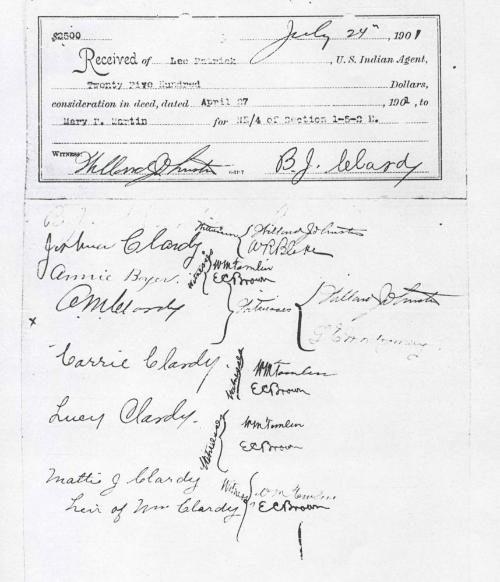 $2500 July 24", 1901
Received of Lee Patrick, U.S. Indian Agent,
Twenty Five Hundred Dollars,
consideration in deed, dated April 27, 1901, to
Mary P. Martin for NE/4 of Section 1-5-2 E.
WITNESS: Willard Johnston B. J. Clardy
B. J.
Joshua Clardy Witnesses Willard Johnston
W R Blake
Annie Boyer. Witnesses Wm Tomlin
E C Brown
A M Clardy Witnesses Willard Johnston
x
Carrie Clardy. Witnesses Wm Tomlin
E C Brown
Lucy Clardy. Witnesses Wm Tomlin
E C Brown
Mattie J Clardy Witness Wm Tomlin
heir of Wm Clardy E C Brown